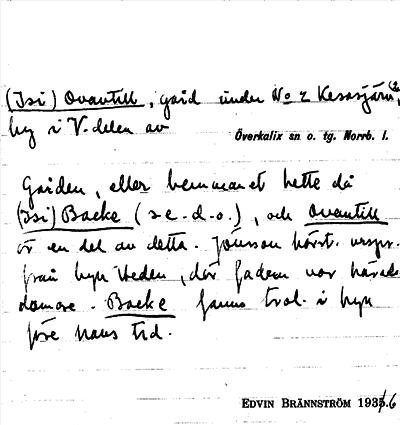 (Isi) Ovantill, gård under No 2 Kesasjärv,
by i V. delen av
Överkalix sn o. tg. Norrb. l.
Gården, eller hemmanet hette då
(Isi) Backe (s e. d. o.), och Ovantill
är en del av detta. Jönsson härst. urspr.
från byn Heden, där fadern var härads
domare. Backe fanns trol. i byn
före hans tid.
EDVIN BRÄNNSTRÖM 1936